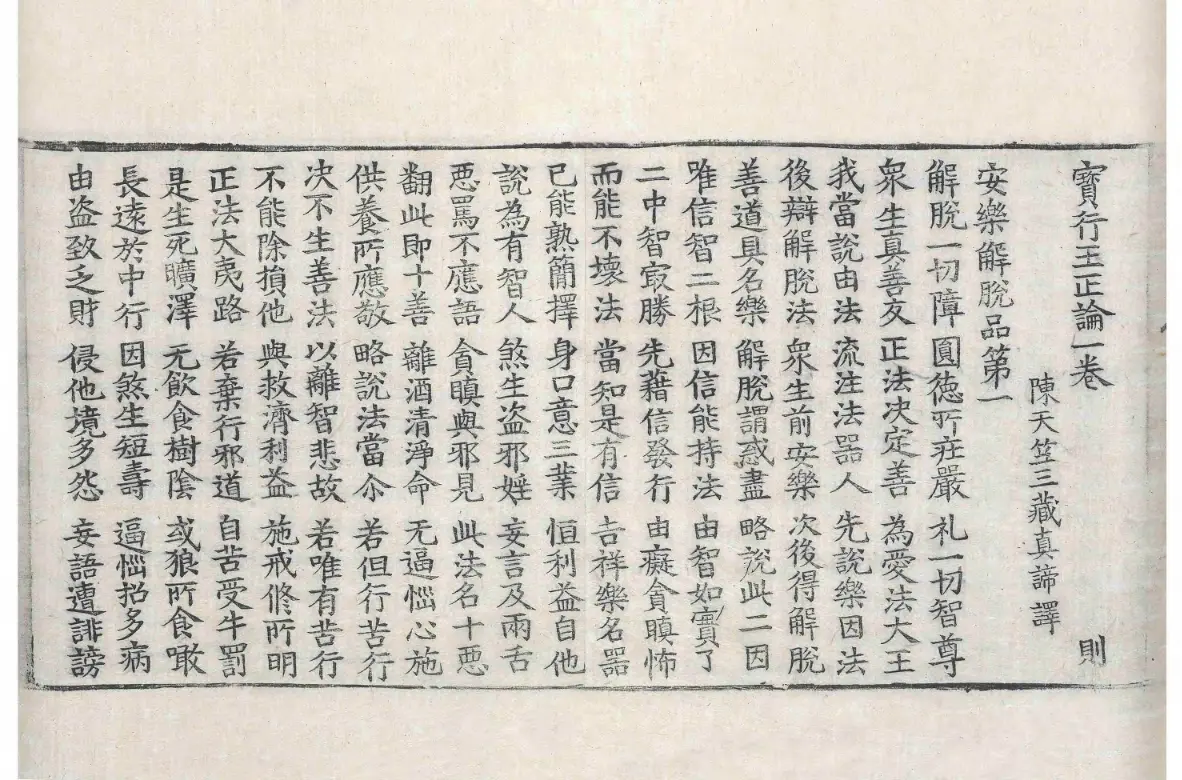 寶行王正論一卷 則
陳天竺三藏真諦譯
安樂解脫品第一
解脫一切障 圓德所莊嚴 礼一切智尊
衆生真善友 正法决定善 為愛法大王
我當說由法 流注法器人 先說樂因法
後辯解脫法 衆生前安樂 次後得解脫
善道具名樂 解脫謂惑盡 略說此二因
唯信智二根 因信能持法 由智如實了
二中智㝡勝 先藉信發行 由癡貪瞋怖
而能不壞法 當知是有信 吉祥樂名器
已能熟簡擇 身口意三業 恒利益自他
說為有智人 煞生盗邪婬 妄言及兩舌
惡罵不應語 貪瞋與邪見 此法名十惡
翻此即十善 離酒清淨命 无逼惱心施
供養所應敬 略說法當尒 若但行苦行
决不生善法 以離智悲故 若唯有苦行
不能除損他 與救濟利益 施戒修所明
正法大夷路 若棄行邪道 自苦受牛罰
是生死曠澤 无飲食樹陰 或狼所食噉
長遠於中行 因煞生短壽 逼惱招多病
由盗致乏財 侵他境多怨 妄語遭誹謗